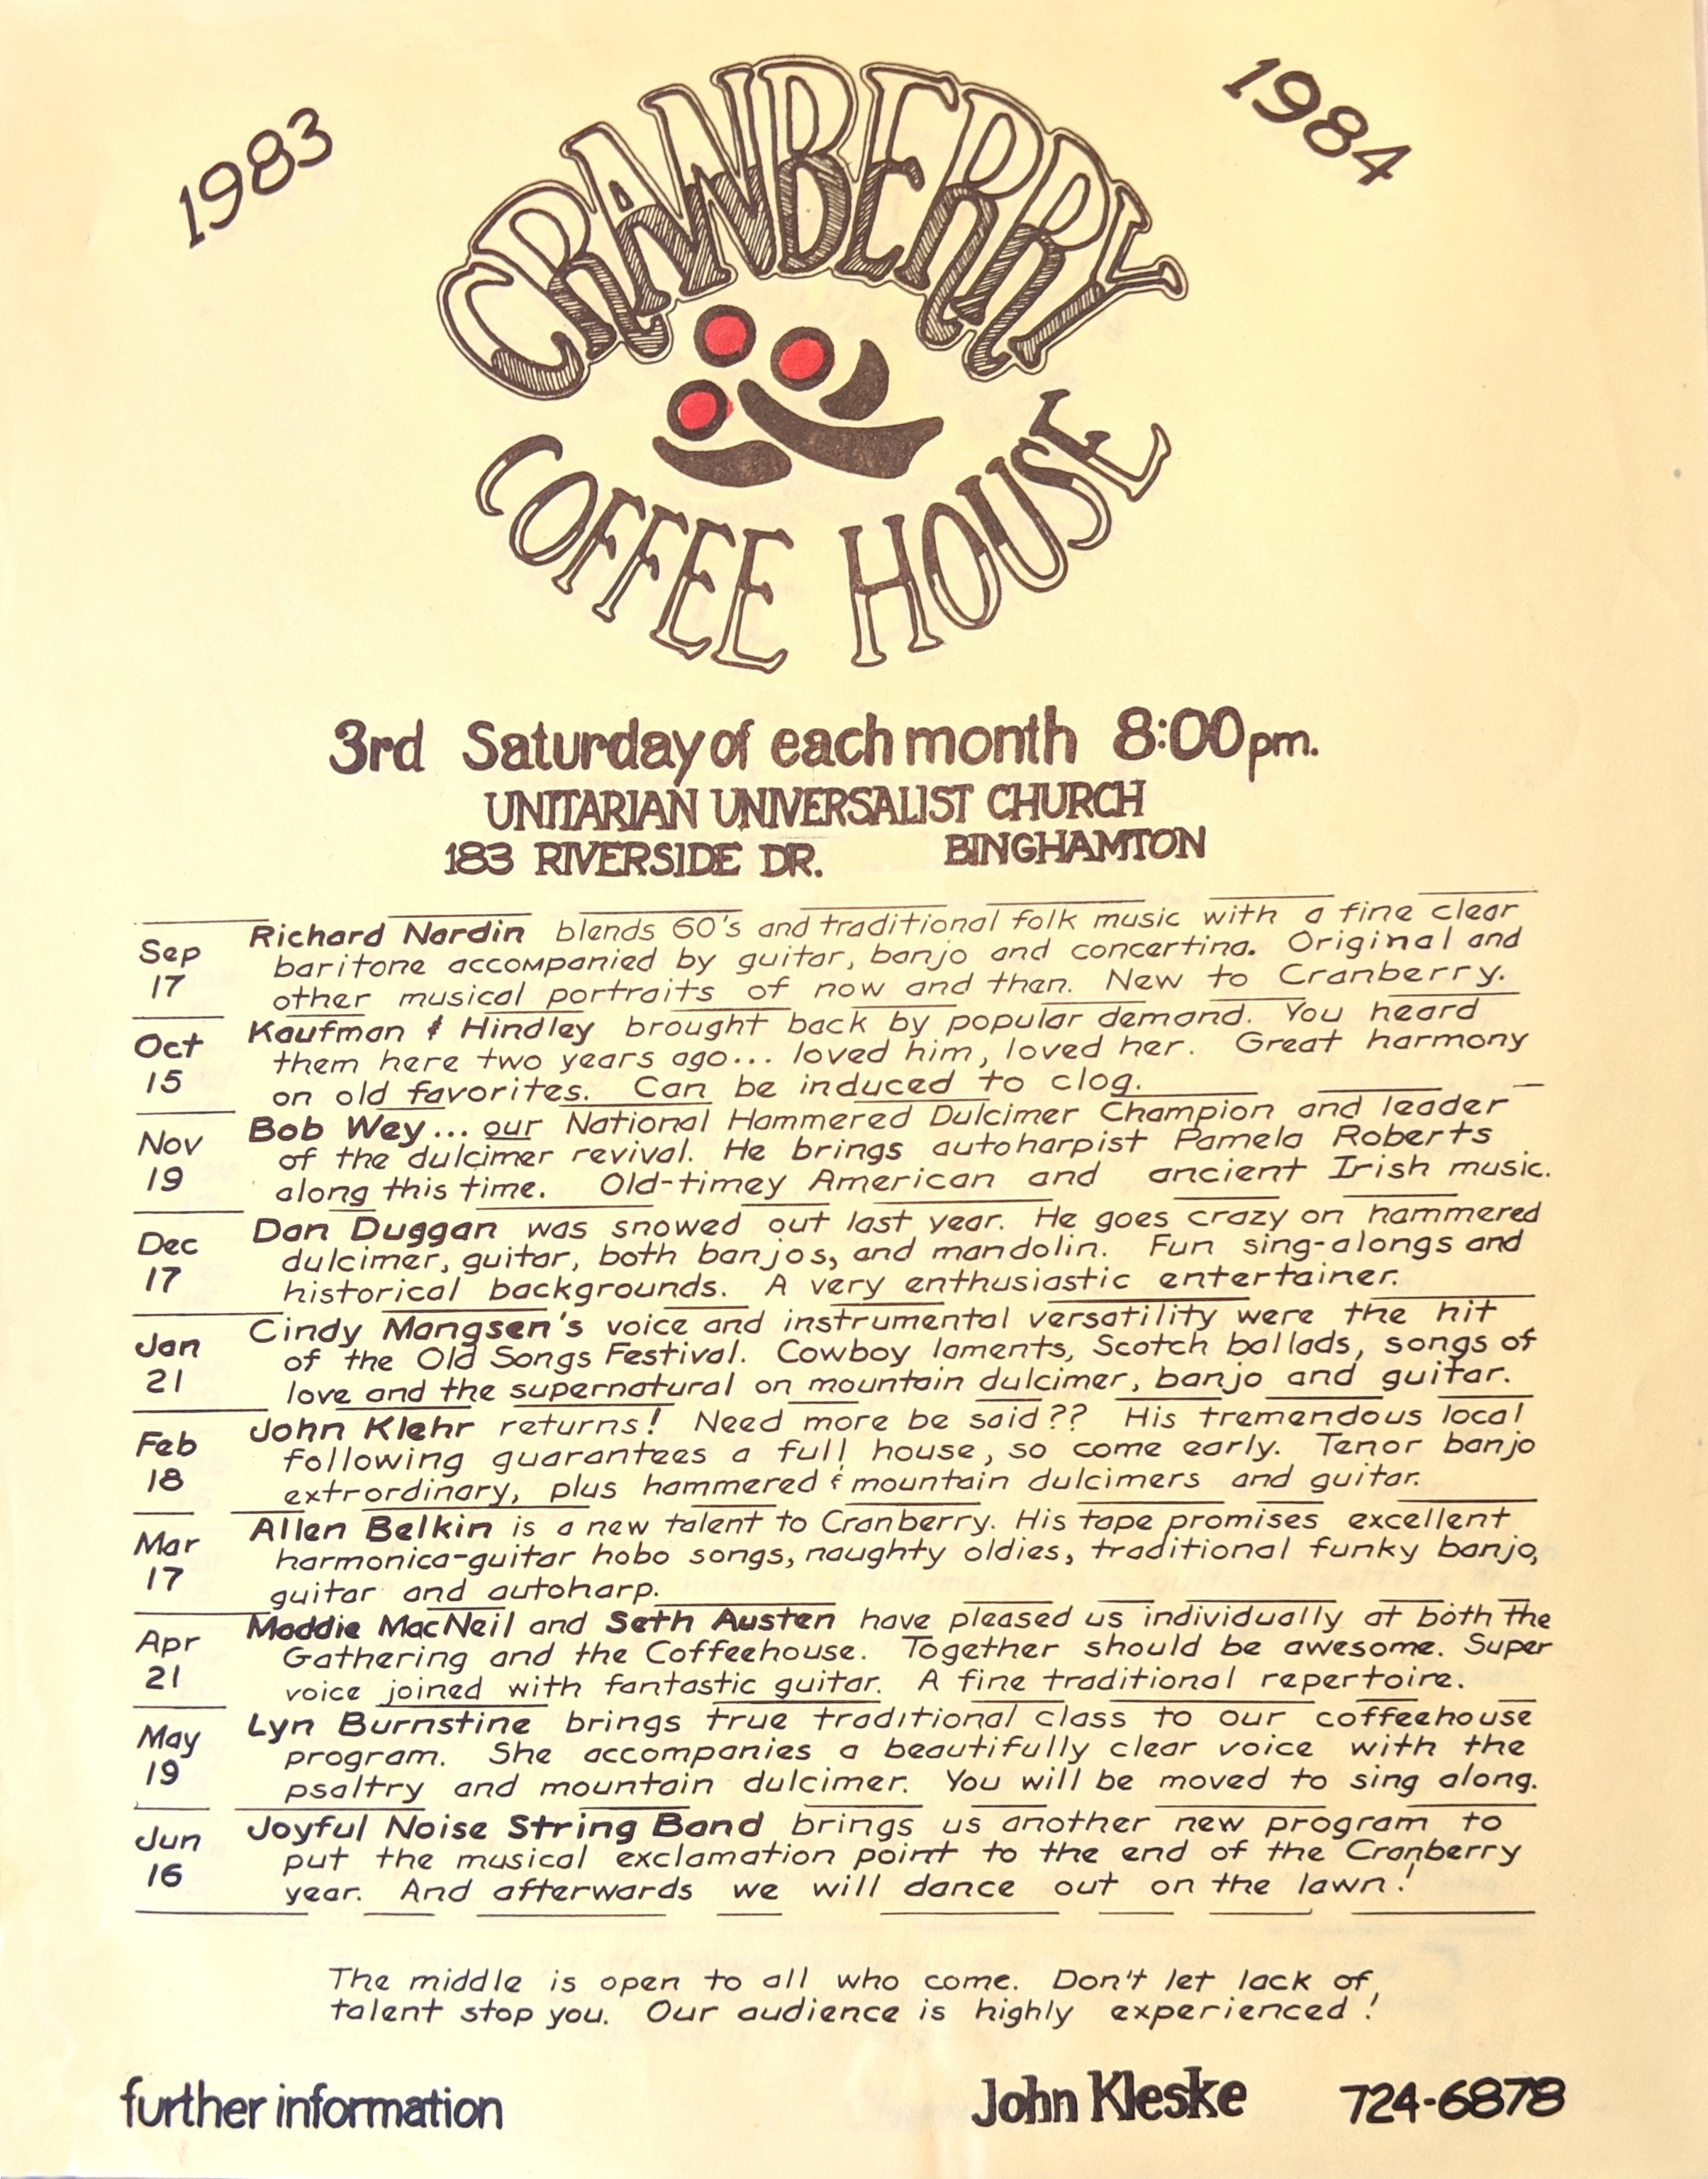 1983
1984
CRANBERRY
COFFEE HOUSE
3rd Saturday of each month 8:00pm.
UNITARIAN UNIVERSALIST CHURCH
183 RIVERSIDE DR. BINGHAMTON
Sep 17
Richard Nardin blends 60's and traditional folk music with a fine clear
baritone accompanied by guitar, banjo and concertina. Original and
other musical portraits of now and then. New to Cranberry.
Oct 15
Kaufman & Hindley brought back by popular demand. You heard
them here two years ago... loved him, loved her. Great harmony
on old favorites. Can be induced to clog.
Nov 19
Bob Wey... our National Hammered Dulcimer Champion and leader
of the dulcimer revival. He brings autoharpist Pamela Roberts
along this time. Old-timey American and ancient Irish music.
Dec 17
Dan Duggan was snowed out last year. He goes crazy on hammered
dulcimer, guitar, both banjos, and mandolin. Fun sing-alongs and
historical backgrounds. A very enthusiastic entertainer.
Jan 21
Cindy Mangsen's voice and instrumental versatility were the hit
of the Old Songs Festival. Cowboy laments, Scotch ballads, songs of
love and the supernatural on mountain dulcimer, banjo and guitar.
Feb 18
John Klehr returns! Need more be said?? His tremendous local
following guarantees a full house, so come early. Tenor banjo
extrordinary, plus hammered & mountain dulcimers and guitar.
Mar 17
Allen Belkin is a new talent to Cranberry. His tape promises excellent
harmonica-guitar hobo songs, naughty oldies, traditional funky banjo,
guitar and autoharp.
Apr 21
Maddie MacNeil and Seth Austen have pleased us individually at both the
Gathering and the Coffeehouse. Together should be awesome. Super
voice joined with fantastic guitar. A fine traditional repertoire.
May 19
Lyn Burnstine brings true traditional class to our coffeehouse
program. She accompanies a beautifully clear voice with the
psaltry and mountain dulcimer. You will be moved to sing along.
Jun 16
Joyful Noise String Band brings us another new program to
put the musical exclamation point to the end of the Cranberry
year. And afterwards we will dance out on the lawn!
The middle is open to all who come. Don't let lack of
talent stop you. Our audience is highly experienced!
further information John Kleske 724-6878